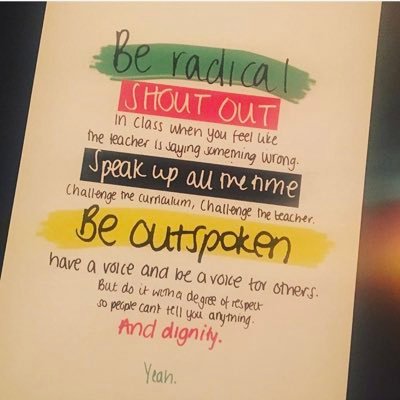 Be radical
SHOUT OUT
In class when you feel like
the teacher is saying something wrong.
Speak up all the time
Challenge the curriculum, Challenge the teacher.
Be outspoken
have a voice and be a voice for others.
But do it with a degree of respect
so people can't tell you anything.
And dignity.
Yeah.